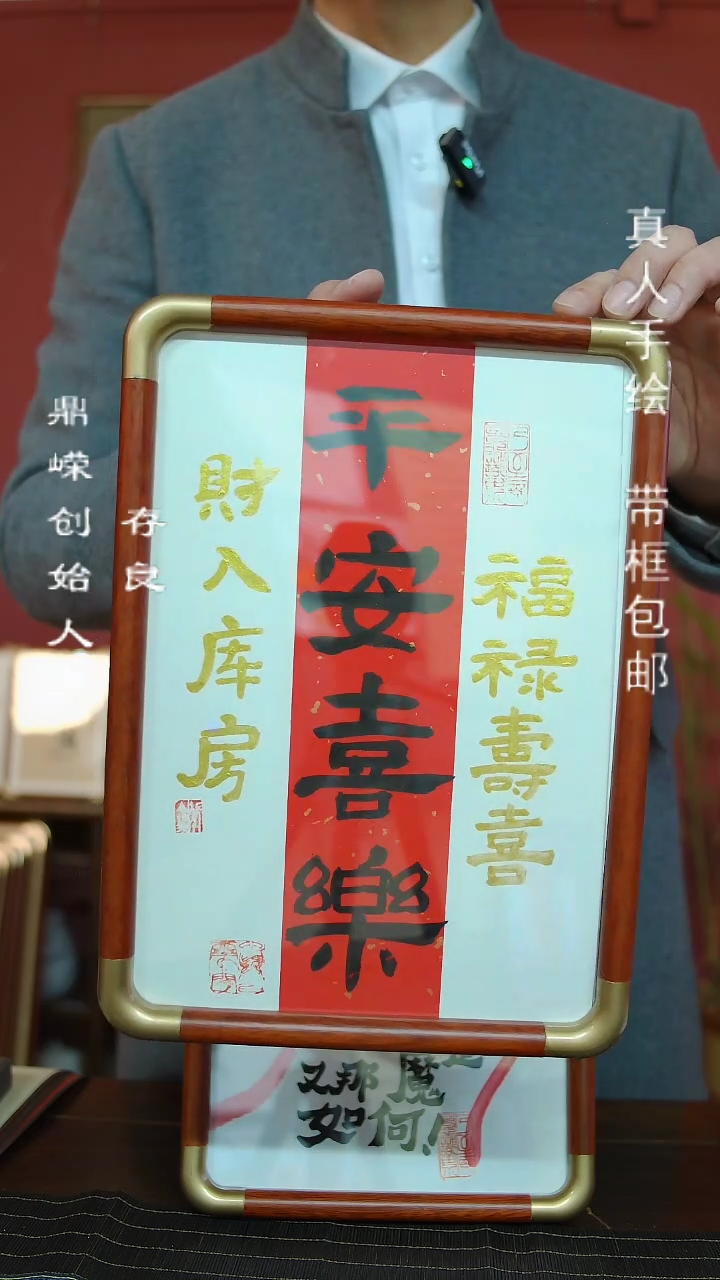 真人手绘 带框包邮
鼎嵘创始人
存良
福禄壽喜
平安喜樂
財入库房
又那
魔
如何!